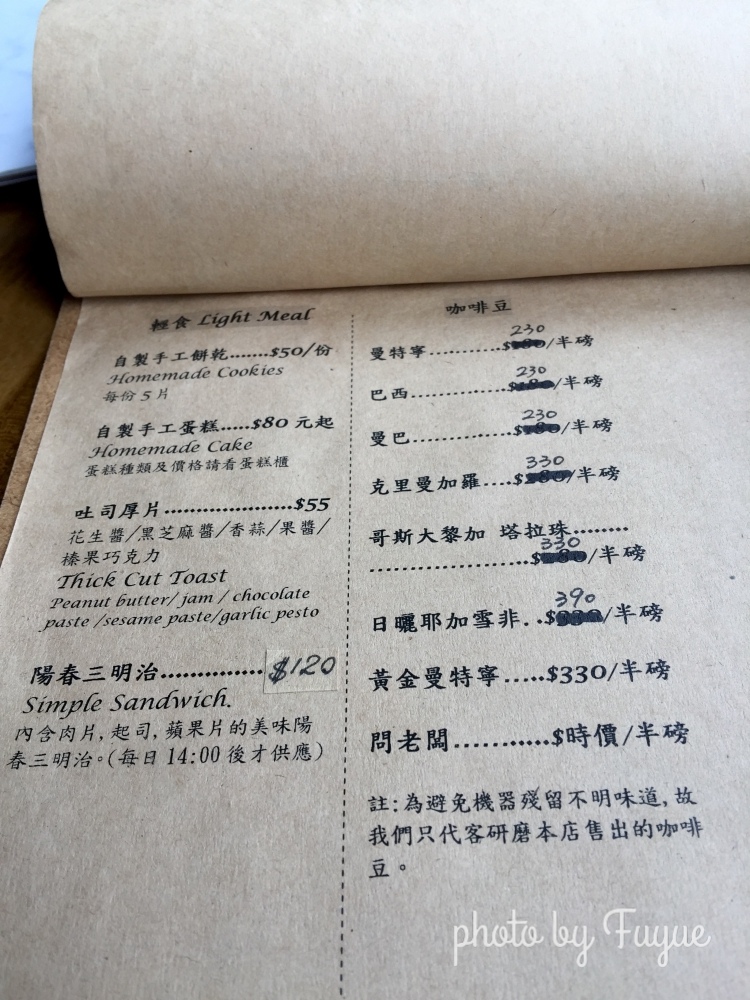 輕食 Light Meal
自製手工餅乾.......$50/份
Homemade Cookies
每份 5 片
自製手工蛋糕.....$80 元起
Homemade Cake
蛋糕種類及價格請看蛋糕櫃
吐司厚片....................$55
花生醬/黑芝麻醬/香蒜/果醬/
榛果巧克力
Thick Cut Toast
Peanut butter/ jam / chocolate
paste /sesame paste/garlic pesto
陽春三明治...............$120
Simple Sandwich.
內含肉片, 起司, 蘋果片的美味陽
春三明治。(每日 14:00 後才供應)
咖啡豆
230
曼特寧...........$180/半磅
230
巴西...............$180/半磅
230
曼巴...............$180/半磅
330
克里曼加羅....$280/半磅
哥斯大黎加 塔拉珠........
330
.......................$280/半磅
390
日曬耶加雪非..$/半磅
黃金曼特寧.....$330/半磅
問老闆...........$時價/半磅
註:為避免機器殘留不明味道, 故
我們只代客研磨本店售出的咖啡
豆。
photo by Fuyue